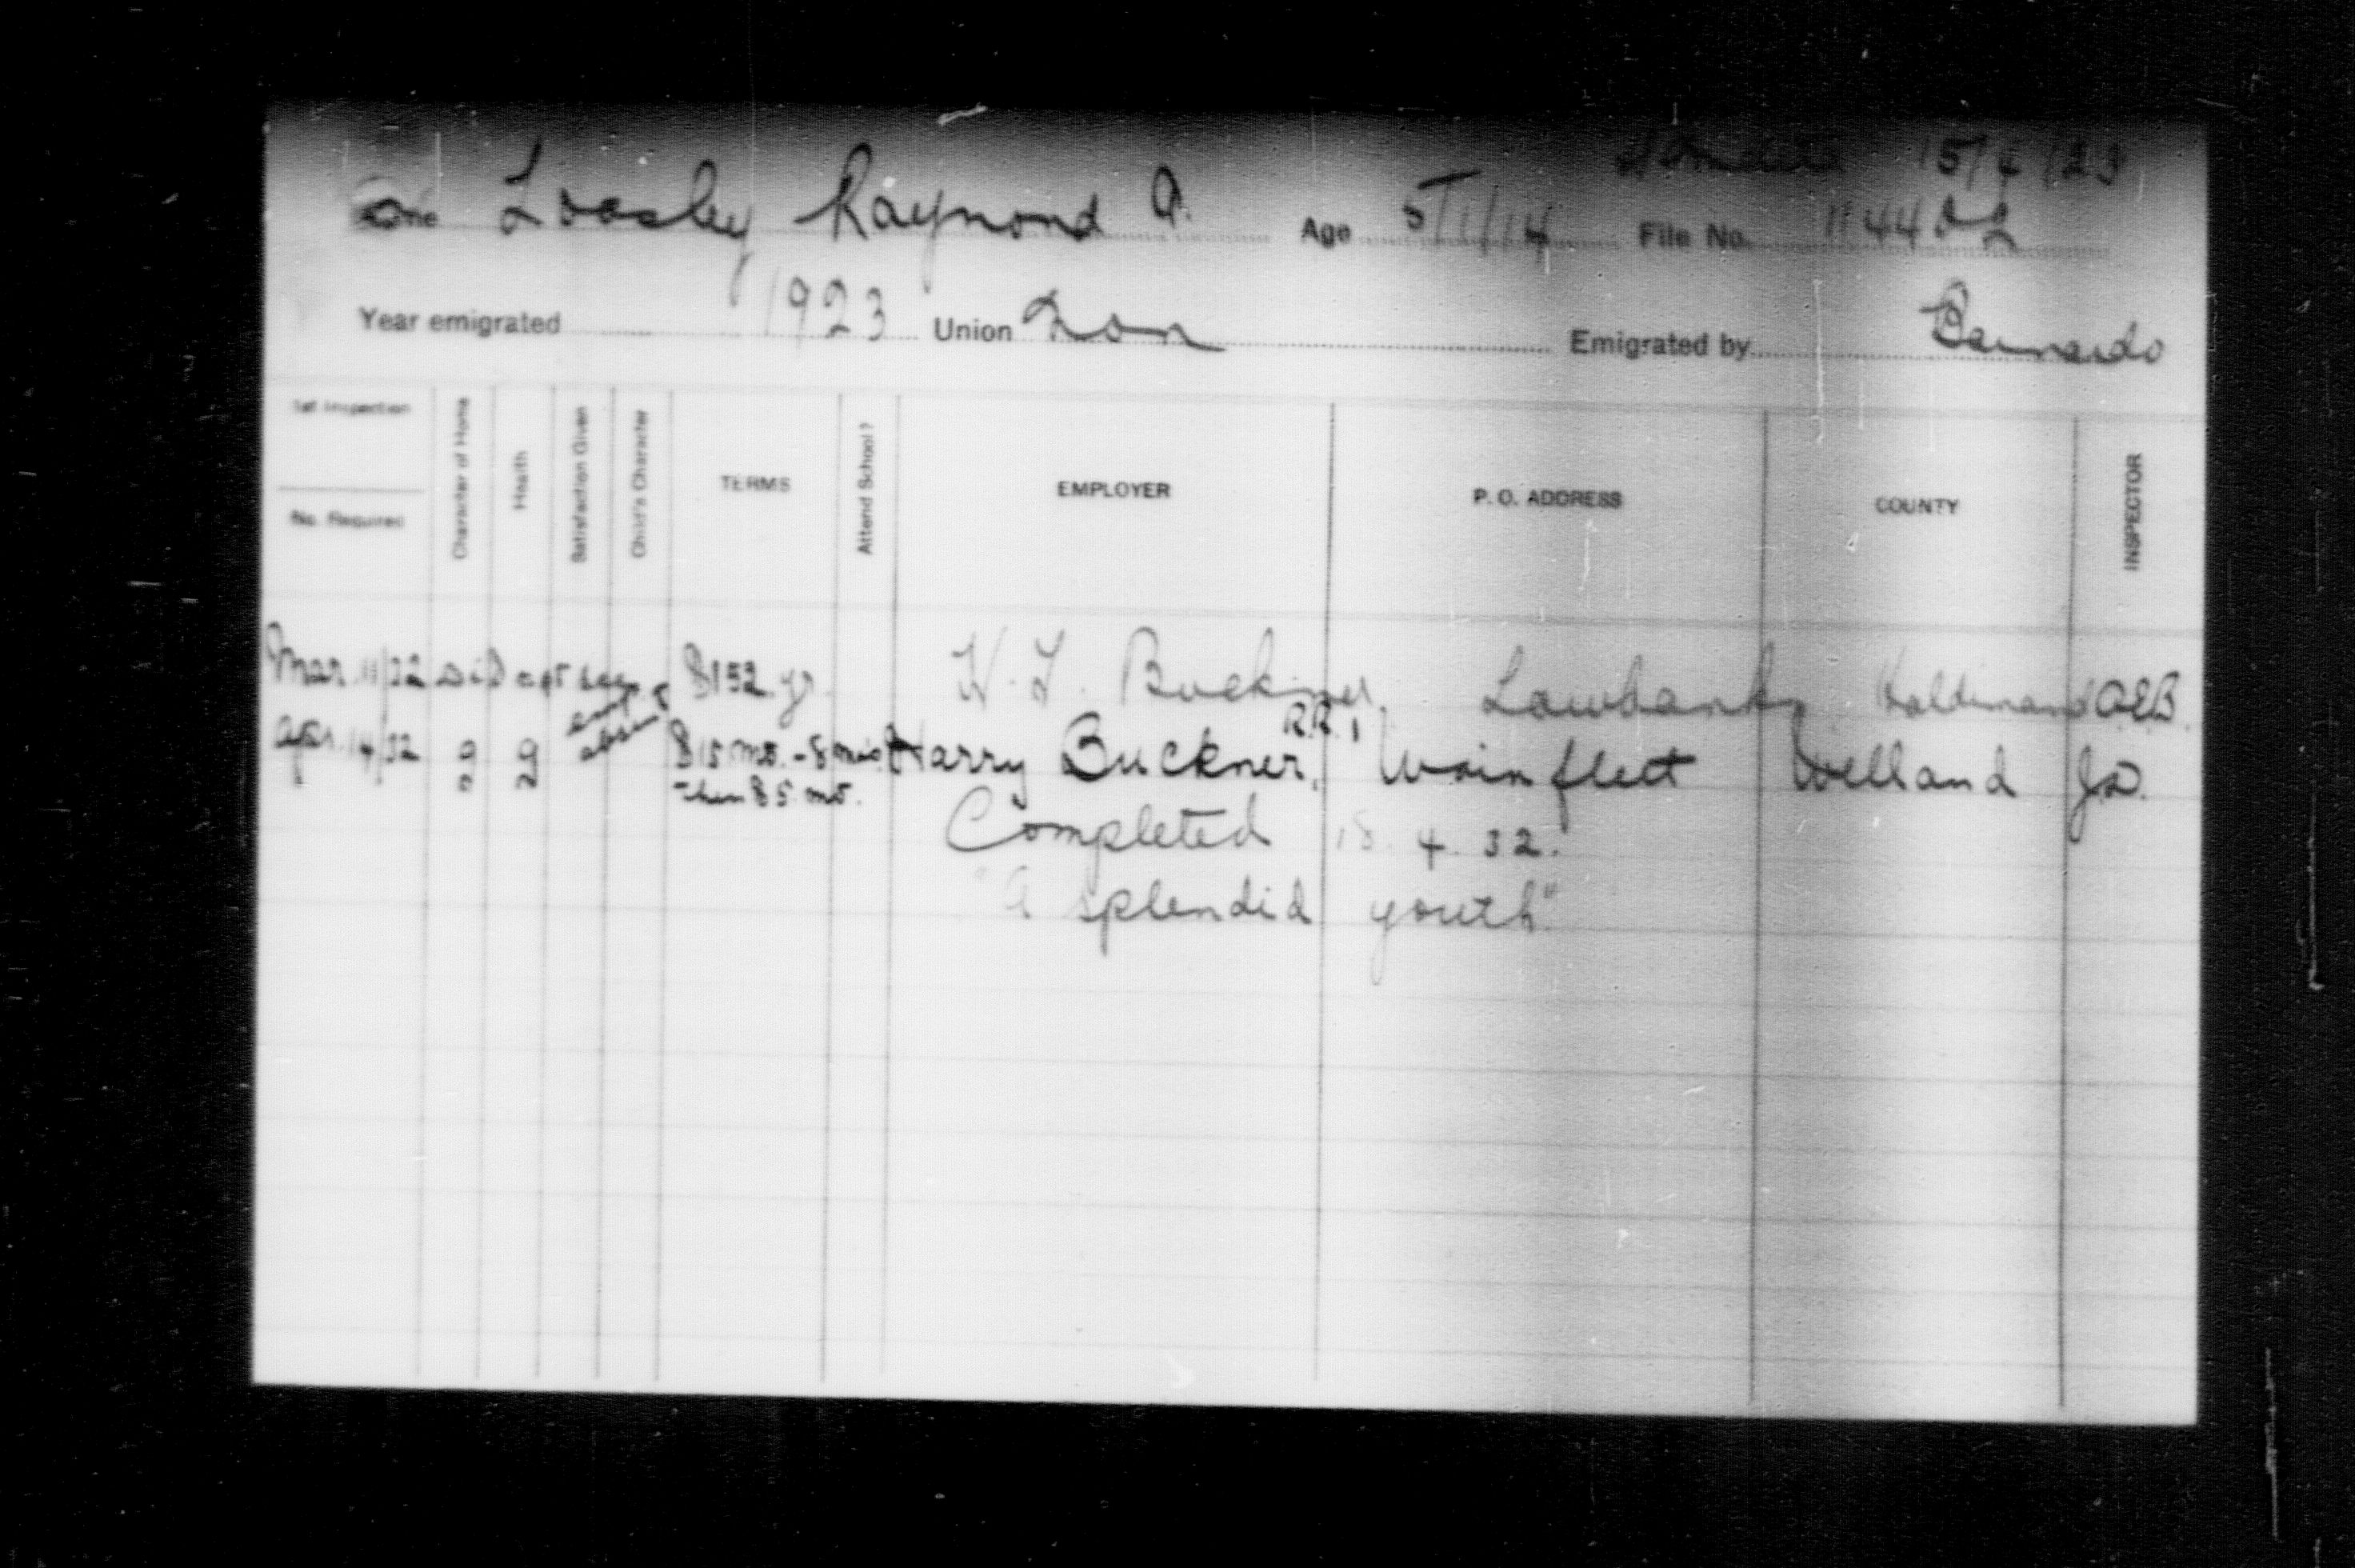 15/4/23
Name Loosley Raymond A. Age 5/1/14 File No.
Year emigrated 1923 Union Non Emigrated by Barnardo
1st Inspection
No. Required
Character of Home
Health
Satisfaction Given
Child's Character
TERMS
Attend School?
EMPLOYER
P. O. ADDRESS
COUNTY
INSPECTOR
Mar. 11/32 did not see $152 yr. H. L. Buckner, Lowbanks Haldimand A.E.B.
above
Apr. 14/32 g g $15 mo. - 8 mos. Harry Buckner, R.R. 1 Wainfleet Welland
then $5 mo.
Completed 18. 4. 32.
"A splendid youth"